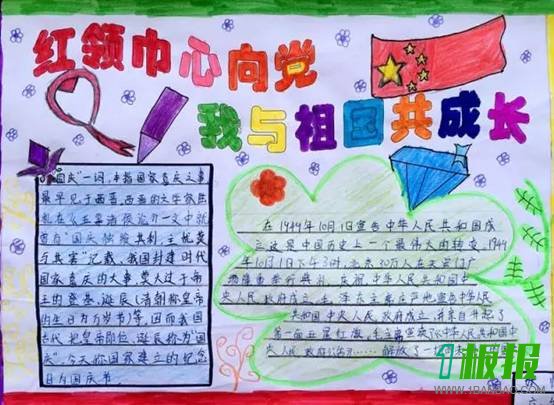 红领巾心向党
我与祖国共成长
"国庆"一词,本指国家喜庆之事
最早见于西晋,西晋的文学家陆
机在《五等诸侯论》一文中就
曾有"国庆独飨其利,主忧莫
与其害"记载,我国封建时代
国家喜庆的大事,莫大过于帝
王的登基,诞辰(清朝称皇帝
的生日为万岁节)等,因而我国
古代把皇帝即位,诞辰称为"国
庆",今天称国家建立的纪念
日为国庆节.
在1949年10月1日宣告中华人民共和国成
立这是中国历史上一个最伟大的转变,1949
年10月1日下午3时,北京30万人在天安门广
场隆重举行典礼,庆祝中华人民共和国中
央人民政府成立,毛泽东主席庄严地宣告中华人民
共和国中央人民政府成立,并亲自升起了
第一面五星红旗,毛主席宣读《中华人民共和国中
央人民政府公告》……解放了一
1板报
WWW.1BANBAO.COM